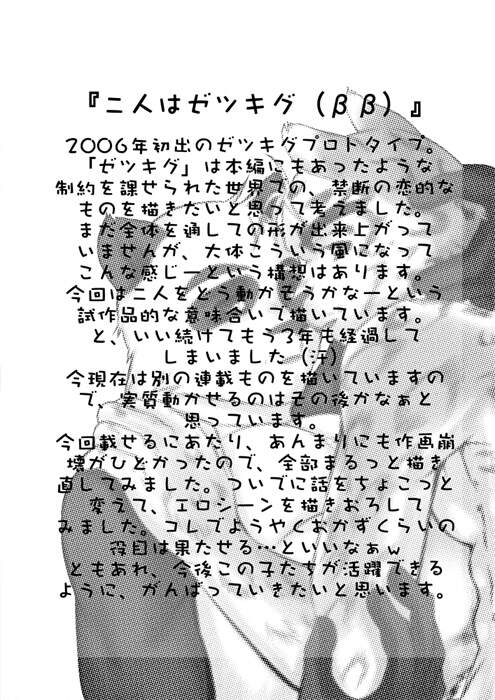 『二人はゼツキグ（ββ）』
2006年初出のゼツキグプロトタイプ。
「ゼツキグ」は本編にもあったような
制約を課せられた世界での、禁断の恋的な
ものを描きたいと思って考えました。
まだ全体を通しての形が出来上がって
いませんが、大体こういう風になって
こんな感じーという構想はあります。
今回は二人をどう動かそうかなーという
試作品的な意味合いで描いています。
と、いい続けてもう3年も経過して
しまいました（汗）
今現在は別の連載ものを描いていますの
で、実質動かせるのはその後かなぁと
思っています。
今回載せるにあたり、あんまりにも作画崩
壊がひどかったので、全部まるっと描き
直してみました。ついでに話をちょこっと
変えて、エロシーンを描きおろして
みました。コレでようやくおかずくらいの
役目は果たせる…といいなぁw
ともあれ、今後この子たちが活躍できる
ように、がんばっていきたいと思います。